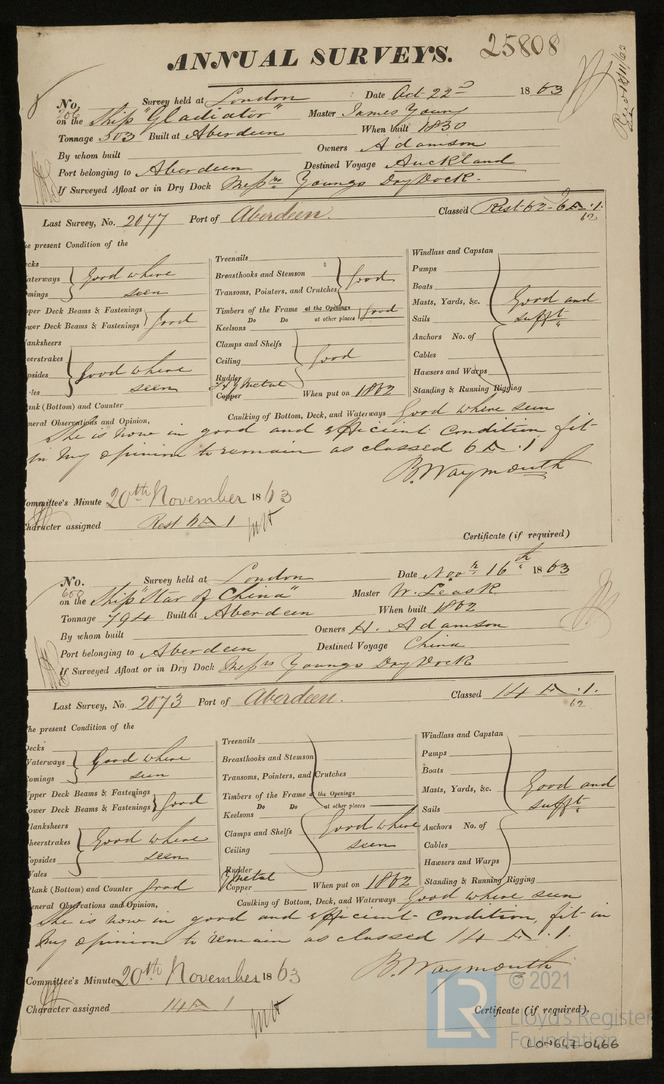 ANNUAL SURVEYS. 25808
No. 206 Survey held at London Date Oct 22nd 1863
on the Ship "Gladiator" Master James Young
Tonnage 503 Built at Aberdeen When built 1850
By whom built Owners Adamson
Port belonging to Aberdeen Destined Voyage Auckland
If Surveyed Afloat or in Dry Dock Messrs Youngs Dry Dock.
Last Survey, No. 2077 Port of Aberdeen. Classed Rest. 62-6 A.1.
62
he present Condition of the
ecks
aterways Good where
omings seen
pper Deck Beams & Fastenings
ower Deck Beams & Fastenings Good
lanksheers
heerstrakes
opsides Good where
ales seen
lank (Bottom) and Counter
Treenails
Breasthooks and Stemson
Transoms, Pointers, and Crutches Good
Timbers of the Frame at the Openings Good
Do Do at other places
Keelsons
Clamps and Shelfs
Ceiling Good
Rudder
Y Metal
Copper When put on 1862
Windlass and Capstan
Pumps
Boats
Masts, Yards, &c. Good and
Sails sufft
Anchors No. of
Cables
Hawsers and Warps
Standing & Running Rigging
eneral Observations and Opinion, Caulking of Bottom, Deck, and Waterways Good where seen
She is now in good and efficient Condition fit
in my opinion to remain as classed 6 A.1
B. Waymouth
Committee's Minute 20th November 1863
Character assigned Rest 6 A 1
Certificate (if required)
No. 600 Survey held at London Date Novr 16th 1863
on the Ship "Star of China" Master W. Leask
Tonnage 794 Built at Aberdeen When built 1862
By whom built Owners H. Adamson
Port belonging to Aberdeen Destined Voyage China
If Surveyed Afloat or in Dry Dock Messrs Youngs Dry Dock
Last Survey, No. 2073 Port of Aberdeen. Classed 14 A.1.
62
he present Condition of the
Decks
Waterways Good where
omings seen
Upper Deck Beams & Fastenings
ower Deck Beams & Fastenings Good
Planksheers
heerstrakes Good where
opsides seen
Wales
Plank (Bottom) and Counter Good
Treenails
Breasthooks and Stemson
Transoms, Pointers, and Crutches
Timbers of the Frame at the Openings
Do Do at other places
Keelsons
Clamps and Shelfs Good where
Ceiling seen
Rudder
Y Metal
Copper When put on 1862
Windlass and Capstan
Pumps
Boats
Masts, Yards, &c. Good and
Sails sufft
Anchors No. of
Cables
Hawsers and Warps
Standing & Running Rigging
eneral Observations and Opinion, Caulking of Bottom, Deck, and Waterways Good where seen
She is now in good and efficient Condition, fit in
my opinion to remain as classed 14 A.1.
B. Waymouth
Committee's Minute 20th November 1863
Character assigned 14 A 1
Certificate (if required).
© 2021
LR
Lloyd's Register
Foundation
LON647-0466